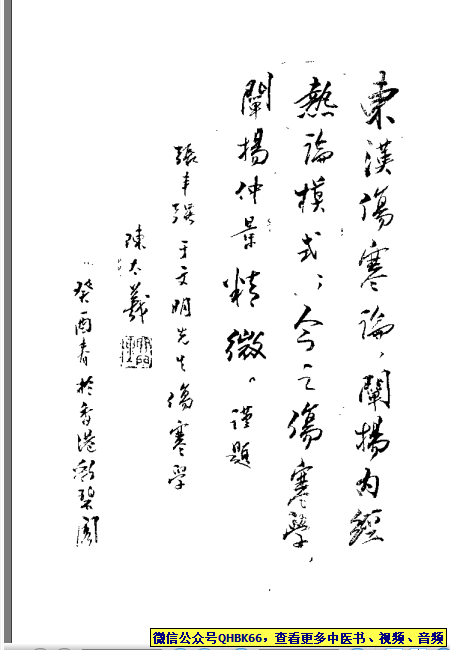 東漢傷寒論，闡揚內經
熱論模式；今之傷寒學，
闡揚仲景精微。謹題
張丰于文明先生傷寒学
陳太羲
癸酉春於香港碧
微信公众号QHBK66，查看更多中医书、视频、音频